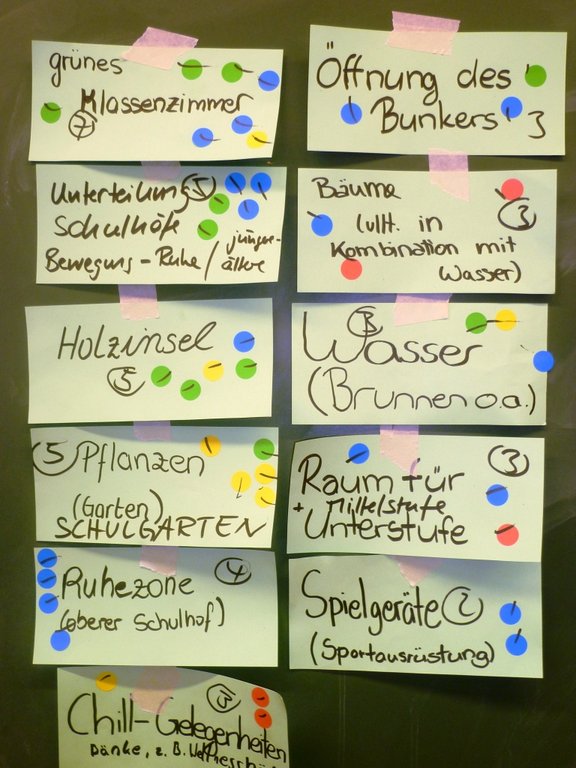 grünes
Klassenzimmer
7
Unterteilung 5
Schulhöfe
Bewegung - Ruhe / jüngere-
ältere
Holzinsel
5
5 Pflanzen
(Garten)
SCHULGARTEN
4
Ruhezone
(oberer Schulhof)
3
Chill-Gelegenheiten
Bänke, z. B.
Öffnung des
Bunkers 3
Bäume
3
(vllt. in
Kombination mit
Wasser)
3
Wasser
(Brunnen o.a.)
3
Raum für
+ Mittelstufe
Unterstufe
Spielgeräte 2
(Sportausrüstung)